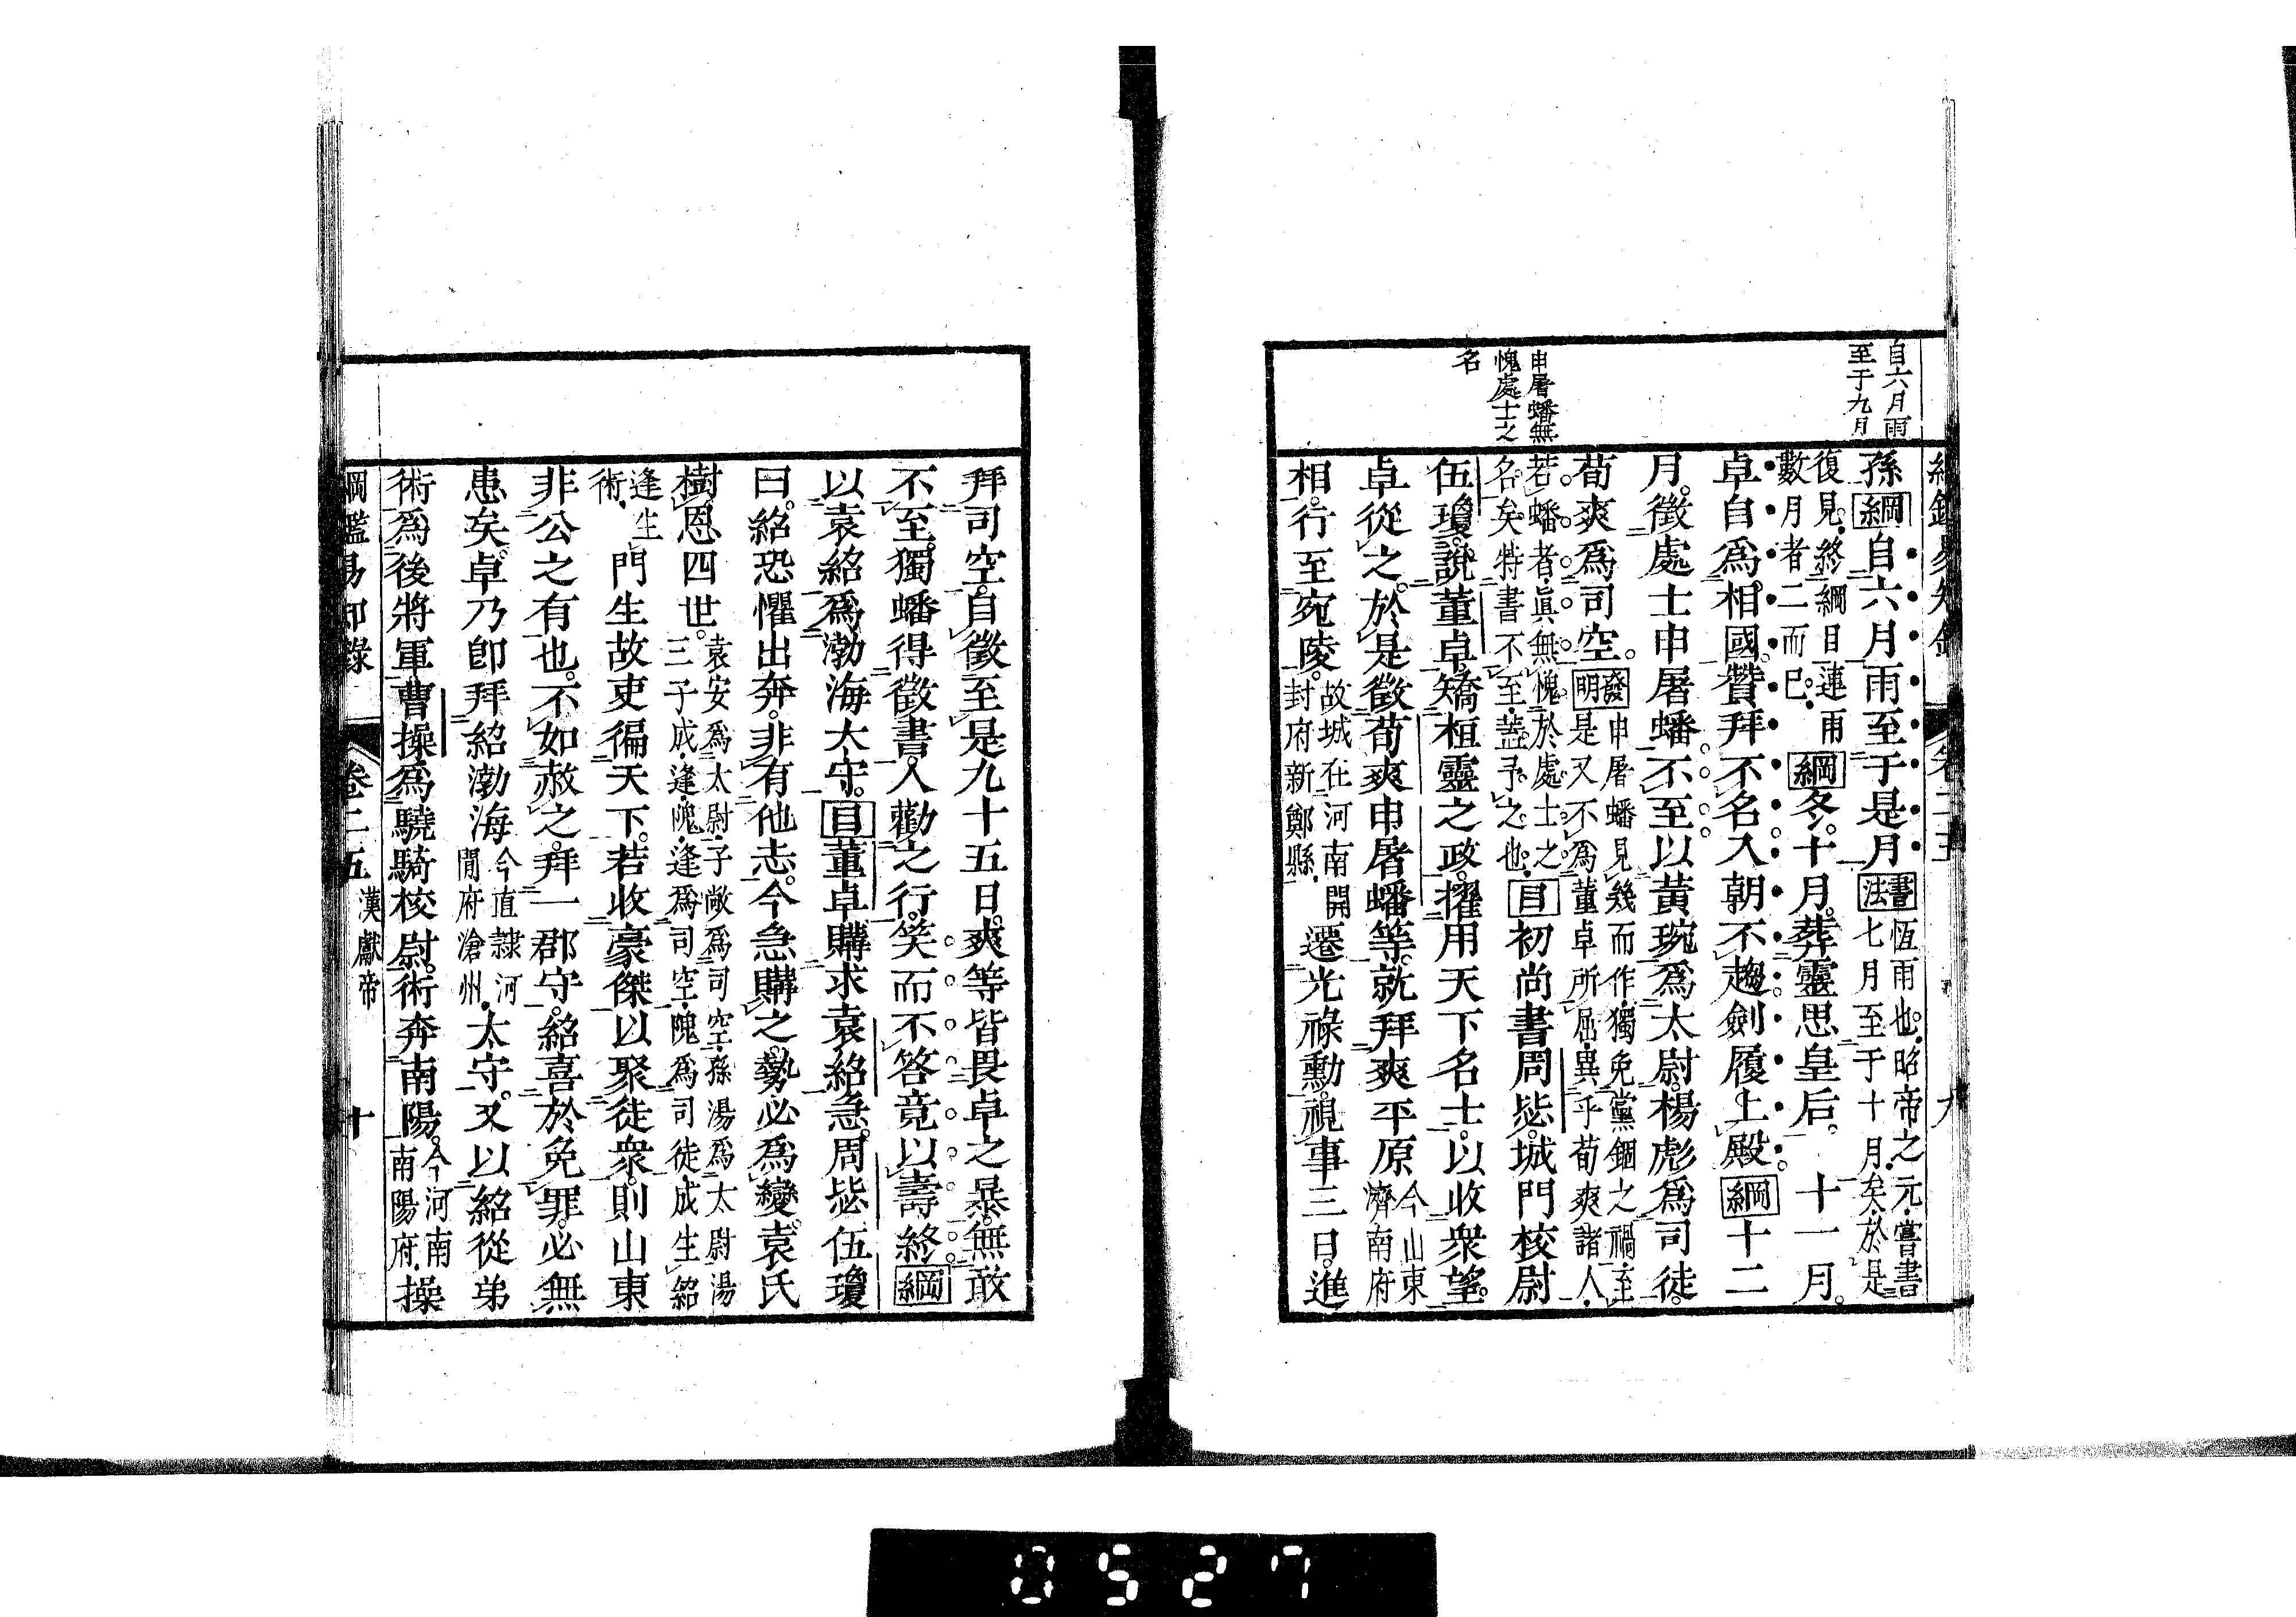 自六月雨
至于九月
申屠蟠無
愧處士之
名
孫綱自六月雨至于是月書法恆雨也昭帝之元嘗書
七月至于十月矣於是
復見終綱目連雨
數月者二而已綱冬十月葬靈思皇后十一月
卓自爲相國贊拜不名入朝不趨劍履上殿綱十二
月徵處士申屠蟠不至以黃琬爲太尉楊彪爲司徒
荀爽爲司空發明申屠蟠見幾而作獨免黨錮之禍至
是又不爲董卓所屈異乎荀爽諸人
若蟠者眞無愧於處士之
名矣特書不至蓋予之也目初尚書周毖城門校尉
伍瓊說董卓矯桓靈之政擢用天下名士以收衆望
卓從之於是徵荀爽申屠蟠等就拜爽平原今山東
濟南府
相行至宛陵故城在河南開
封府新鄭縣遷光祿勳視事三日進
拜司空自徵至是九十五日爽等皆畏卓之暴無敢
不至獨蟠得徵書人勸之行笑而不答竟以壽終綱
以袁紹爲渤海太守目董卓購求袁紹急周毖伍瓊
曰紹恐懼出奔非有他志今急購之勢必爲變袁氏
樹恩四世袁安爲太尉子敞爲司空孫湯爲太尉湯
三子成逢隗逢爲司空隗爲司徒成生紹
逢生
術門生故吏徧天下若收豪傑以聚徒衆則山東
非公之有也不如赦之拜一郡守紹喜於免罪必無
患矣卓乃卽拜紹渤海今直隸河
閒府滄州太守又以紹從弟
術爲後將軍曹操爲驍騎校尉術奔南陽今河南
南陽府操
綱鑑易知錄 卷二五 漢獻帝 十